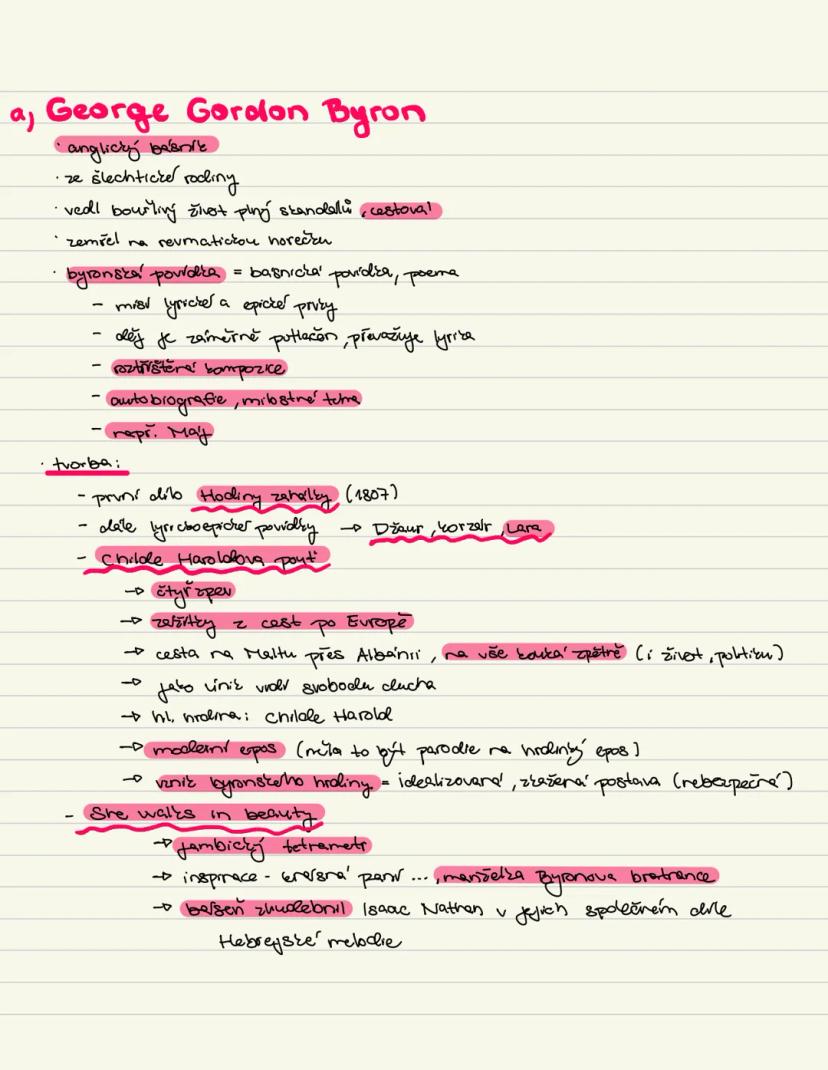 a, George Gordon Byron
· anglický básník
· ze šlechtické rodiny
· vedl bouřlivý život plný skandálů, cestoval
· zemřel na revmatickou horečku
· byronská povídka = básnická povídka, poema
- mísí lyrické a epické prvky
- děj je záměrně potlačen, převažuje lyrika
- roztříštěná kompozice
- autobiografie, milostné téma
- např. Máj
· tvorba:
- první dílo Hodiny zahálky (1807)
- dále lyrickoepické povídky → Džaur, korzár, Lara
- Childe Haroldova pouť
→ čtyřzpěv
→ zážitky z cest po Evropě
→ cesta na Maltu přes Albánii, na vše kouká zpětně (i život, politiku)
→ jako únik vnáší svobodu ducha
→ hl. hrdina: Childe Harold
→ moderní epos (měla to být parodie na hrdinský epos)
→ vznik byronského hrdiny = idealizovaná, zkažená postava (nebezpečná)
- She walks in beauty
→ jambický tetrametr
→ inspirace - krásná paní ..., manželka Byronova bratrance
→ báseň zhudebnil Isaac Nathan v jejich společném díle
Hebrejské melodie